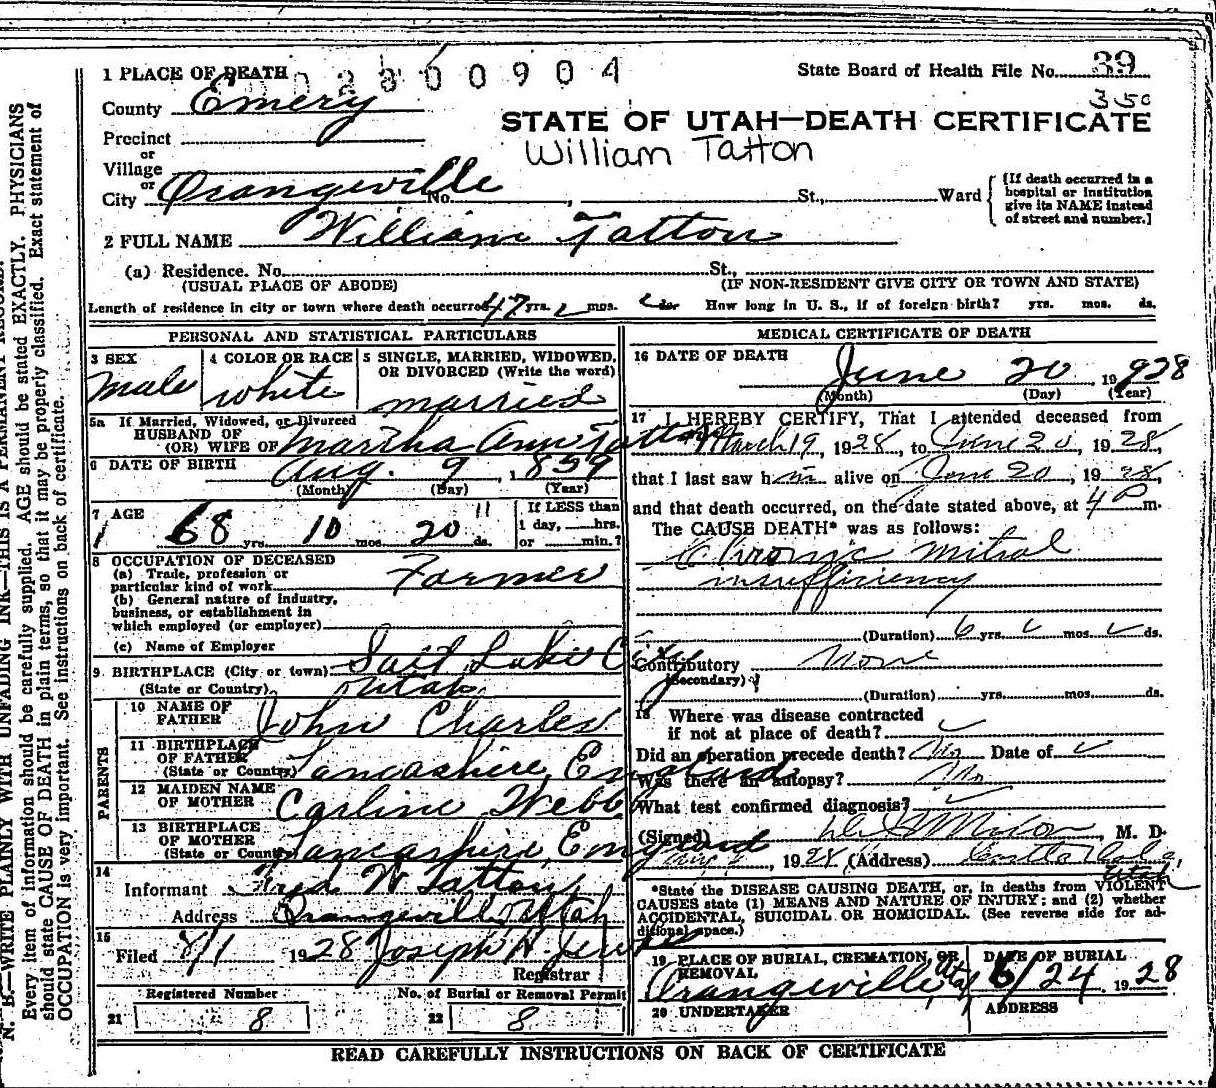 1 PLACE OF DEATH
2800904
State Board of Health File No. 39
350
County Emery
STATE OF UTAH—DEATH CERTIFICATE
William Tatton
Precinct
or
Village
or
City Orangeville No. , St., Ward
{If death occurred in a hospital or institution give its NAME instead of street and number.]
2 FULL NAME William Tatton
(a) Residence. No. St.,
(USUAL PLACE OF ABODE) (IF NON-RESIDENT GIVE CITY OR TOWN AND STATE)
Length of residence in city or town where death occurred 47 yrs. mos. ds. How long in U. S., if of foreign birth? yrs. mos. ds.
PERSONAL AND STATISTICAL PARTICULARS
3 SEX
Male
4 COLOR OR RACE
white
5 SINGLE, MARRIED, WIDOWED, OR DIVORCED (Write the word)
married
5a If Married, Widowed, or Divorced
HUSBAND OF
(OR) WIFE OF Martha Ann Tatton
6 DATE OF BIRTH Aug. 9, 1859
(Month) (Day) (Year)
7 AGE
68 yrs. 10 mos. 20 ds. 11
If LESS than
1 day, hrs.
or min.?
8 OCCUPATION OF DECEASED
(a) Trade, profession or
particular kind of work Farmer
(b) General nature of industry,
business, or establishment in
which employed (or employer)
(c) Name of Employer
9 BIRTHPLACE (City or town) Salt Lake City
(State or Country) Utah
PARENTS
10 NAME OF
FATHER John Charles
11 BIRTHPLACE
OF FATHER
(State or Country) Lancashire, England
12 MAIDEN NAME
OF MOTHER Carline Webb
13 BIRTHPLACE
OF MOTHER
(State or Country) Lancashire, England
14
Informant Fred W Tatton
Address Orangeville, Utah
15
Filed 8/1 1928 Joseph H
Registrar
Registered Number No. of Burial or Removal Permit
21 8 22 8
MEDICAL CERTIFICATE OF DEATH
16 DATE OF DEATH
June 20 1928
(Month) (Day) (Year)
17 I HEREBY CERTIFY, That I attended deceased from
March 19, 1928, to June 20, 1928,
that I last saw him alive on June 20, 1928,
and that death occurred, on the date stated above, at 4 P m.
The CAUSE DEATH* was as follows:
Chronic mitral
insufficiency
(Duration) 6 yrs. mos. ds.
Contributory None
(Secondary)
(Duration) yrs. mos. ds.
18 Where was disease contracted
if not at place of death?
Did an operation precede death? No Date of
Was there an autopsy? No
What test confirmed diagnosis?
(Signed) , M. D.
1928 (Address) Castle Dale,
Utah
*State the DISEASE CAUSING DEATH, or, in deaths from VIOLENT
CAUSES state (1) MEANS AND NATURE OF INJURY; and (2) whether
ACCIDENTAL, SUICIDAL OR HOMICIDAL. (See reverse side for ad-
ditional space.)
19 PLACE OF BURIAL, CREMATION, OR
REMOVAL
Orangeville, Utah
DATE OF BURIAL
6/24 1928
20 UNDERTAKER ADDRESS
READ CAREFULLY INSTRUCTIONS ON BACK OF CERTIFICATE
N. B.—WRITE PLAINLY WITH UNFADING INK—THIS IS A PERMANENT RECORD.
Every item of information should be carefully supplied. AGE should be stated EXACTLY. PHYSICIANS
should state CAUSE OF DEATH in plain terms, so that it may be properly classified. Exact statement of
OCCUPATION is very important. See instructions on back of certificate.